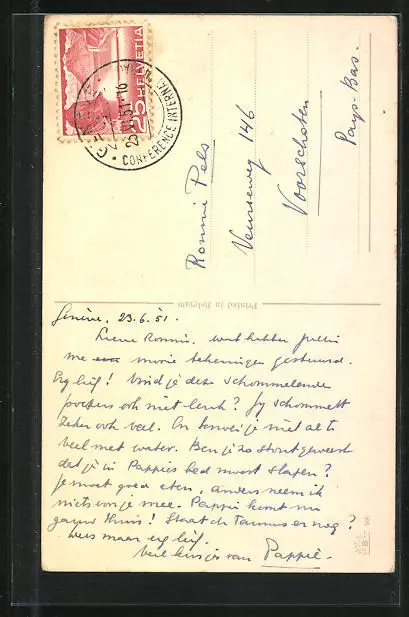 HELVETIA
25
CONFERENCE INTERNA
Ronni Pels
Veurseweg 146
Voorschoten
Pays-Bas.
Printed in Belgium
Genève, 23.6.51.
Lieve Ronni, wat hebben jullie
me mooie tekeningen gestuurd.
Erg lief! Vind je deze schommelende
poesjes ook niet leuk? Jij schommelt
zeker ook veel. En knoei je niet al te
veel met water. Ben je zo stout geweest
dat je in Pappies bed moest slapen?
Je moet goed eten, anders neem ik
niets voor je mee. Pappie komt nu
gauw thuis! Staat de Taunus er nog?
Wees maar erg lief.
Veel kusjes van Pappie.